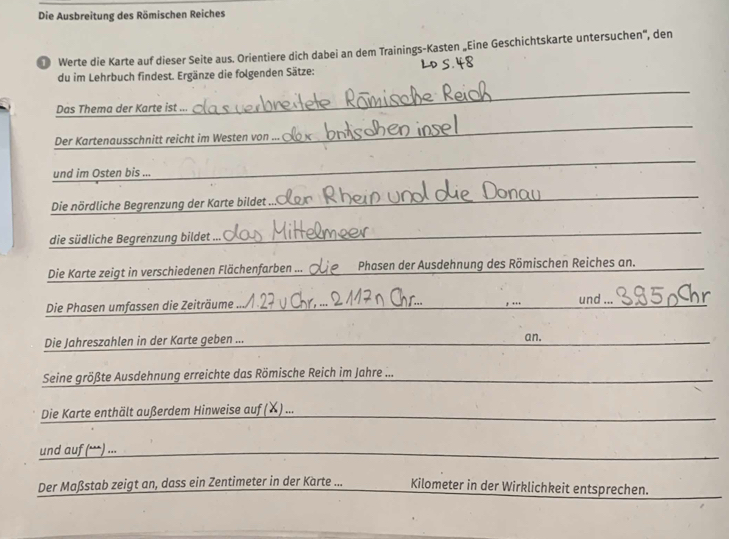 Die Ausbreitung des Römischen Reiches
1 Werte die Karte auf dieser Seite aus. Orientiere dich dabei an dem Trainings-Kasten „Eine Geschichtskarte untersuchen“, den
du im Lehrbuch findest. Ergänze die folgenden Sätze:
↳ S.48
Das Thema der Karte ist ... das verbreitete Römische Reich
Der Kartenausschnitt reicht im Westen von ... der britschen insel
und im Osten bis ...
Die nördliche Begrenzung der Karte bildet ... der Rhein und die Donau
die südliche Begrenzung bildet ... das Mittelmeer
Die Karte zeigt in verschiedenen Flächenfarben ... die Phasen der Ausdehnung des Römischen Reiches an.
Die Phasen umfassen die Zeiträume ... 1.27 v Chr. ... 2 117 n Chr... , ... und ... 3 95 n Chr
Die Jahreszahlen in der Karte geben ... an.
Seine größte Ausdehnung erreichte das Römische Reich im Jahre ...
Die Karte enthält außerdem Hinweise auf (X) ...
und auf (ᵚ) ...
Der Maßstab zeigt an, dass ein Zentimeter in der Karte ... Kilometer in der Wirklichkeit entsprechen.